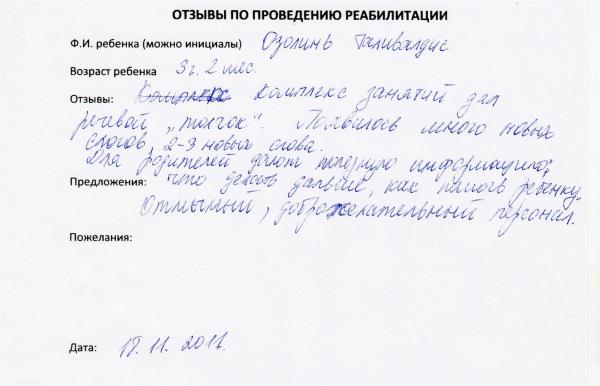 ОТЗЫВЫ ПО ПРОВЕДЕНИЮ РЕАБИЛИТАЦИИ
Ф.И. ребенка (можно инициалы) Озолинь Таливалдис
Возраст ребенка 3 г. 2 мес.
Отзывы: Комплекс Комплекс занятий дал
речевой „толчок“. Появилось много новых
слогов, 2-3 новых слова.
Для родителей дают полезную информацию,
Предложения: что делать дальше, как помочь ребенку.
Отзывчивый, доброжелательный персонал.
Пожелания:
Дата: 18.11.2011.